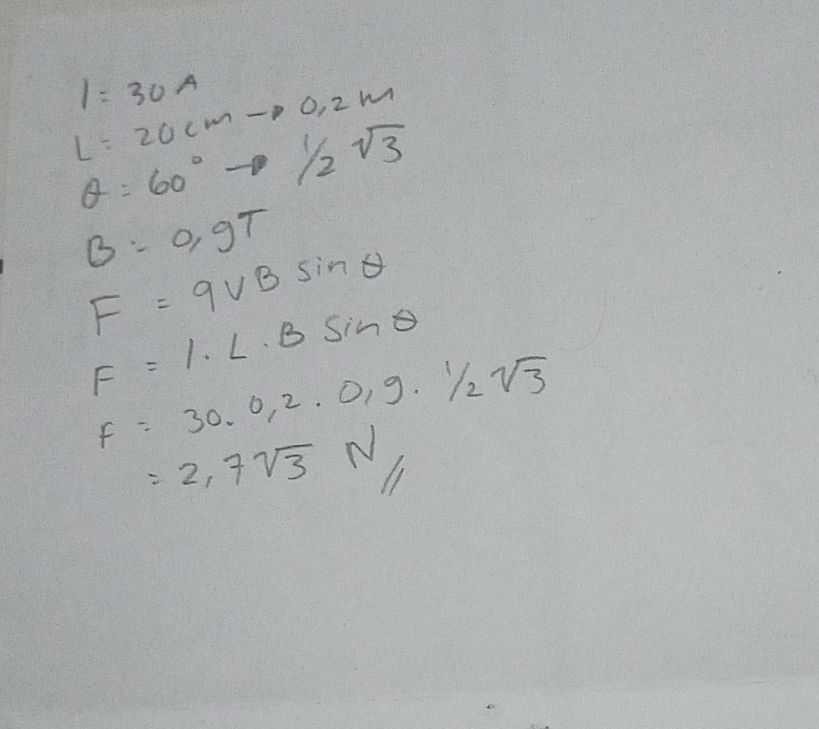 I = 30 A
L = 20 cm → 0,2 m
θ = 60° → 1/2 √3
B = 0,9 T
F = qVB sin θ
F = I. L. B Sin θ
F = 30. 0,2. 0,9. 1/2 √3
= 2,7√3 N //